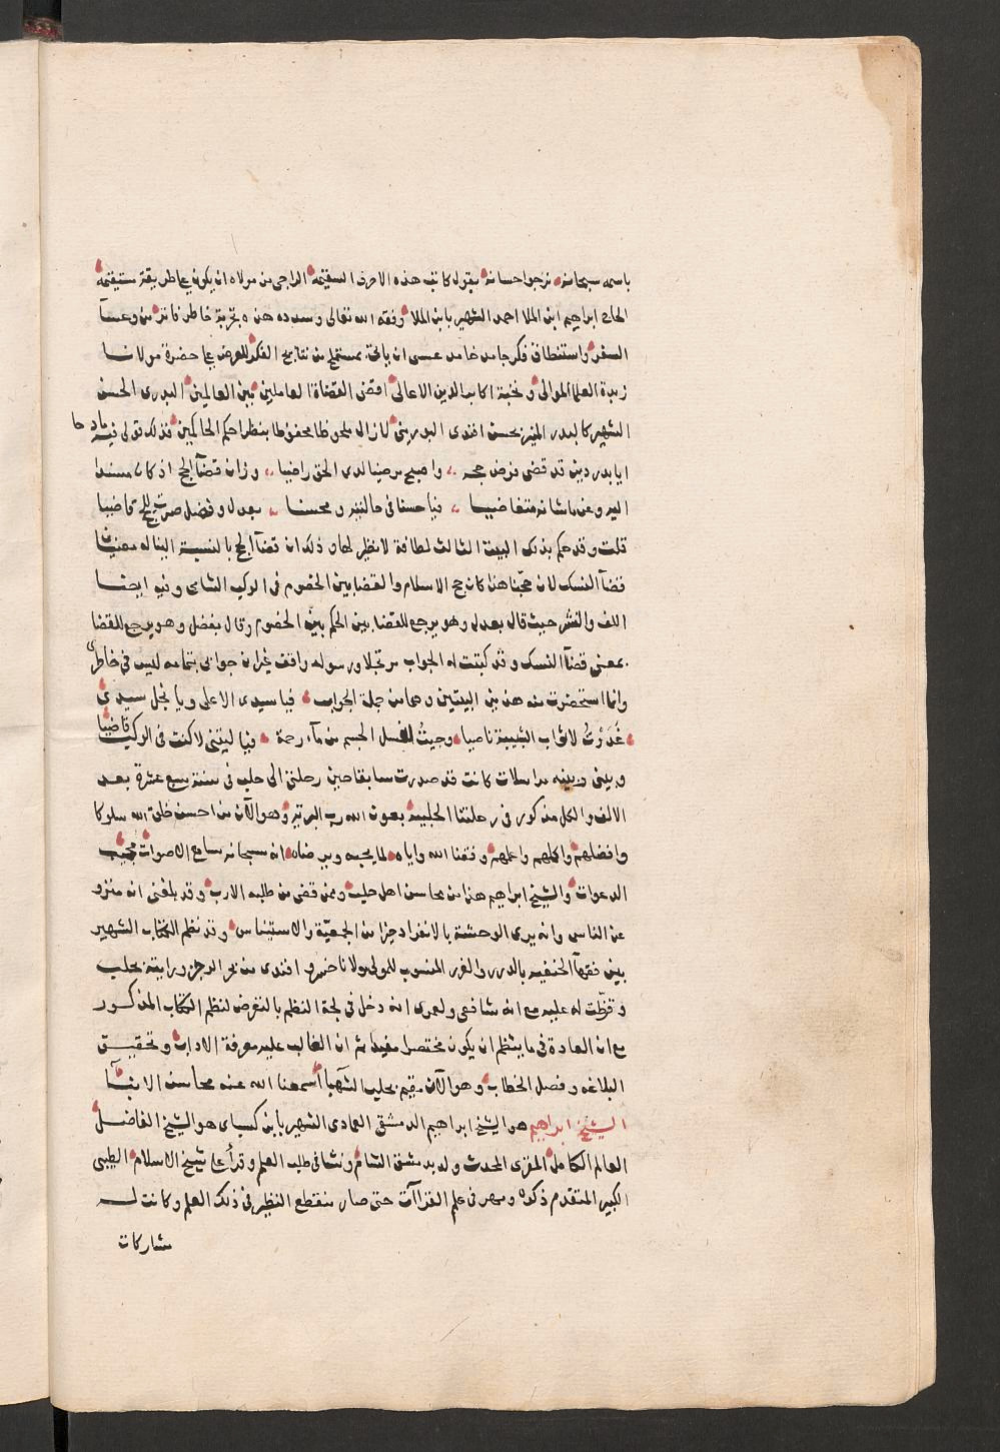 باسمه سبحانه نرجوا احسانه يقول كاتب هذه الاحرف السقيمه الراجى من مولاه ان يكون على طريقة مستقيمه
الحاج ابراهيم ابن الملا احمد الشهير بابن الملا وفقه الله تعالى وسدده هذه تجربة خاطر فاتر من وعثآ
السفر واستنطاق فكر جامد خامد عسى ان يأتى بمستملح من نتايج الفكر للعرض على حضرة مولانا
زبدة العلما الموالى ونخبة اكابر الدين الاعالى اقضى القضاة العاملين بين العالمين البدرى الحسن
الشهير كالبدر المنير بحسن افندى البدرين لا زال ملحوظا محفوظا بنظر احكم الحاكمين فذلك قولى فيه
ايا بدر دين قد قضى فرض حجه واصبح مرضيا لدى الحق راضيا وزان قضآ الحج اذ كان مسندا
اليه وعن ما شانه متغاضيا فيا حسنا فى حالتيه ومحسنا بعدل وفضل صرت للحج قاضيا
قلت وقد حكم بذلك البيت الثالث لطافة لا نظير لها وذلك ان قضآ الحج بالنسبة الينا له معنيان
قضآ النسك لان حجنا هذا كان حج الاسلام والقضا بين الخصوم فى الركب الشامى وفيه ايضا
اللف والنشر حيث قال بعدل وهو يرجع للقضا بين الحكم بين الخصوم وقال بفضل وهو يرجع للقضا
بمعنى قضآ النسك وقد كتبت له الجواب مرتجلا ورسوله واقف غير ان جوابى بتمامه ليس فى خاطرى
وانما استحضرت منه هذين البيتين وهما من جملة الجواب فيا سيدى الاعلى ويا نجل سيدى
غدوت لاثواب الشبيبة ناضيا وجيت لغسل الجسم من مآء رحمة فيا ليتنى لا كنت فى الركب قاضيا
وبينى وبينه مراسلات كانت قد صدرت سابقا حين رحلتى الى حلب فى سنة سبع عشرة بعد
الالف والكل مذكور فى رحلتنا الحلبيه بعون الله رب البريه وهو الآن من احسن خلق الله سلوكا
وافضلهم واكملهم واعلمهم وفقنا الله واياه لما يحبه ويرضاه انه سبحانه سامع الاصوات مجيب
الدعوات والشيخ ابراهيم هذا من محاسن اهل حلب وممن قضى من طلبه الارب وقد بلغنى انه منزو
عن الناس وانه يرى الوحشة بالانفراد خيرا من الجمعية والاستيناس وقد نظم الكتاب الشهير
بين فقهآ الحنفيه بالدرر والغرر المنسوب للمولى مولانا خسرو افندى من بحر الرجز ورايته بحلب
وقرظت له عليه مع انه شافعى ولعمرى انه دخل فى لجة النظم بالتعرض لنظم الكتاب المذكور
مع ان العادة فى ما ينظم ان يكون مختصرا مفيدا ثم ان الغالب عليه معرفة الاداب وتحقيق
البلاغه وفصل الخطاب وهو الآن مقيم بحلب الشهبا أسمعنا الله عنه محاسن الانبآ
الشيخ ابراهيم هو الشيخ ابراهيم الدمشقى العمادى الشهير بابن كسباى هو الشيخ الفاضل
العالم الكامل المقرى المحدث ولد بدمشق الشام ونشا فى طلب العلم وقرأ على شيخ الاسلام الطيبى
الكبير المتقدم ذكره ومهر فى علم القرآآت حتى صار منقطع النظير فى ذلك العلم وكانت له
مشاركات